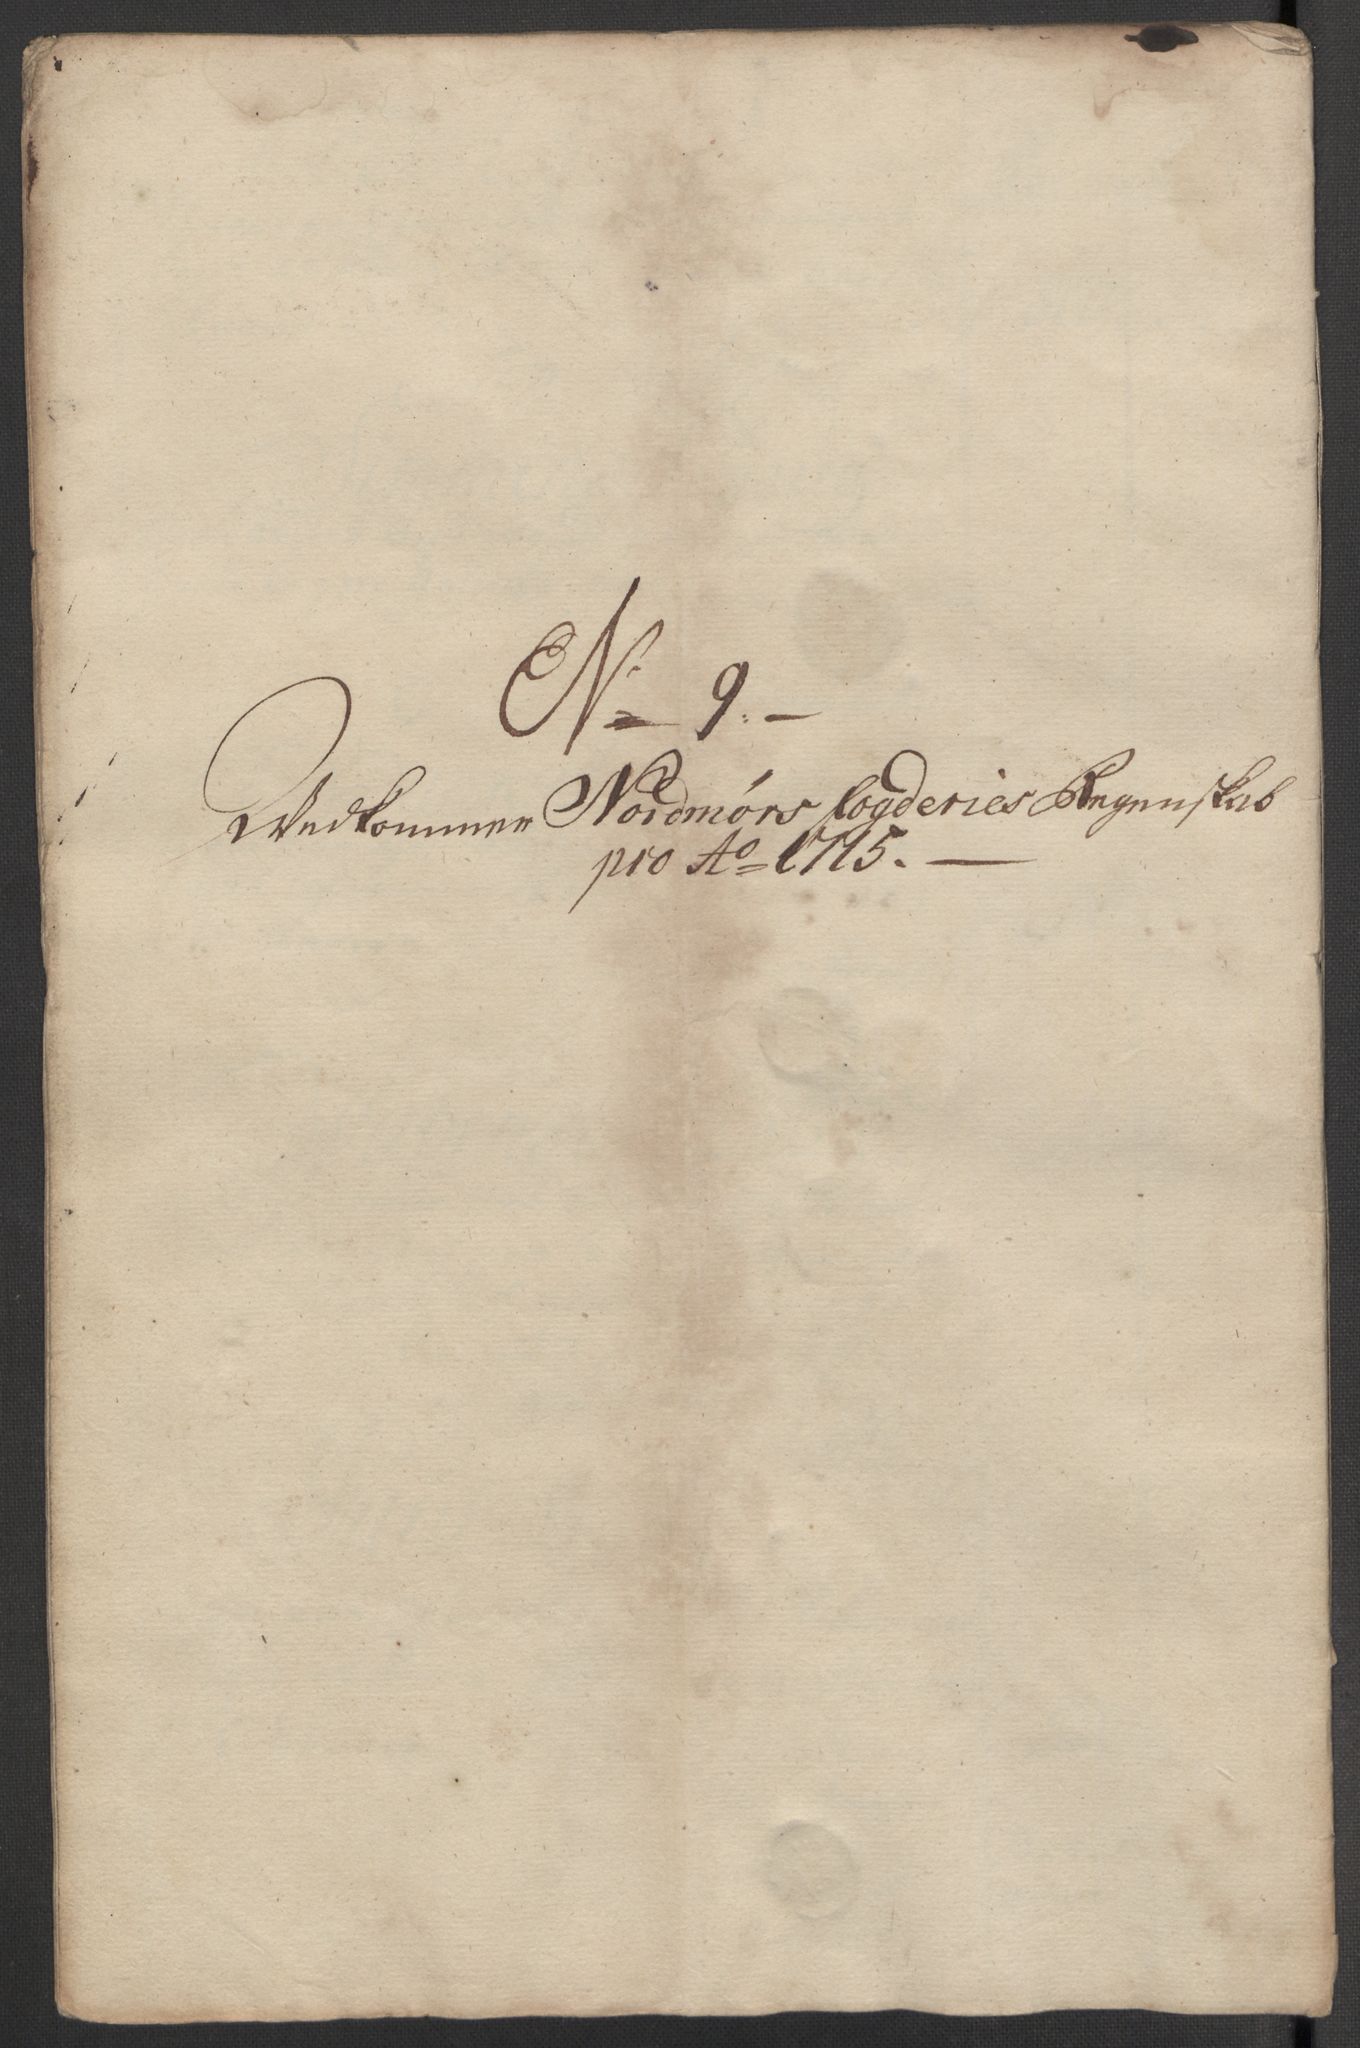 No 9.
Vedkommer Nordmørs fogderies Regenskab
pro Ao 1715.